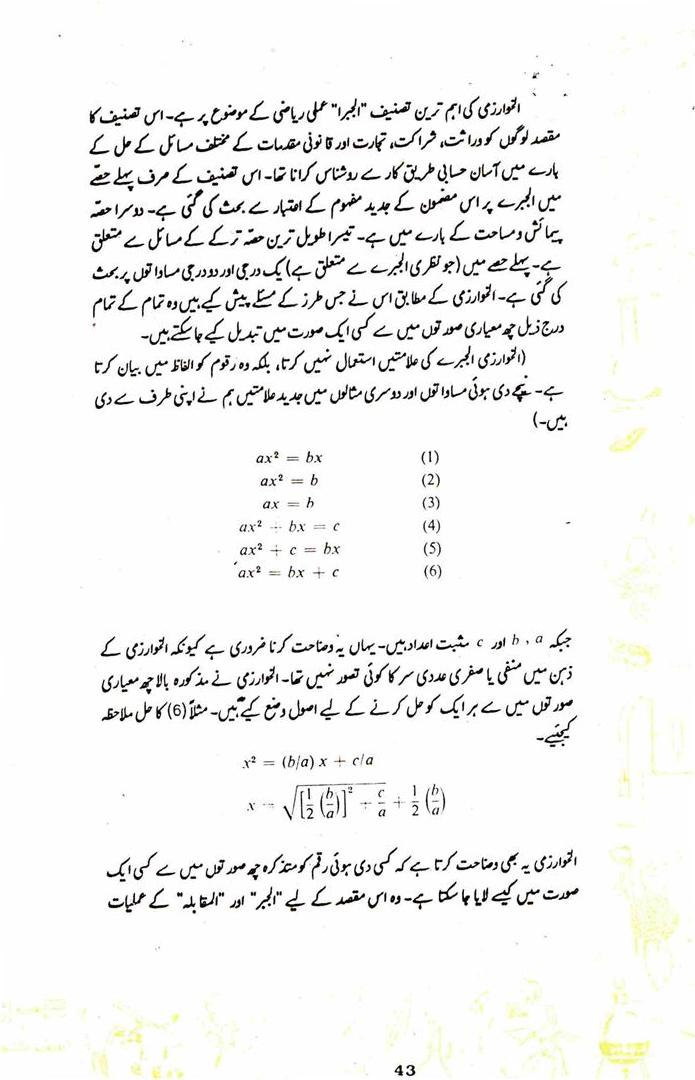 الخوارزمی کی اہم ترین تصنیف "الجبرا" عملی ریاضی کے موضوع پر ہے۔ اس تصنیف کا
مقصد لوگوں کو وراثت، شراکت، تجارت اور قانونی مقدمات کے مختلف مسائل کے حل کے
بارے میں آسان حسابی طریق کار سے روشناس کرانا تھا۔ اس تصنیف کے صرف پہلے حصّے
میں الجبرے پر اس مضمون کے جدید مفہوم کے اعتبار سے بحث کی گئی ہے۔ دوسرا حصّہ
پیمائش و مساحت کے بارے میں ہے۔ تیسرا طویل ترین حصّہ ترکے کے مسائل سے متعلق
ہے۔ پہلے حصے میں (جو نظری الجبرے سے متعلق ہے) یک درجی اور دو درجی مساواتوں پر بحث
کی گئی ہے۔ الخوارزمی کے مطابق اس نے جس طرز کے مسئلے پیش کیے ہیں وہ تمام کے تمام
درج ذیل چھ معیاری صورتوں میں سے کسی ایک صورت میں تبدیل کیے جاسکتے ہیں۔
(الخوارزمی الجبرے کی علامتیں استعمال نہیں کرتا، بلکہ وہ رقوم کو الفاظ میں بیان کرتا
ہے۔ نیچے دی ہوئی مساواتوں اور دوسری مثالوں میں جدید علامتیں ہم نے اپنی طرف سے دی
ہیں۔)
ax² = bx (1)
ax² = b (2)
ax = b (3)
ax² + bx = c (4)
ax² + c = bx (5)
ax² = bx + c (6)
جبکہ a ، b اور c مثبت اعداد ہیں۔ یہاں یہ وضاحت کرنا ضروری ہے کیونکہ الخوارزمی کے
ذہن میں منفی یا صفری عددی سر کا کوئی تصور نہیں تھا۔ الخوارزمی نے مذکورہ بالا چھ معیاری
صورتوں میں سے ہر ایک کو حل کرنے کے لیے اصول وضع کیے ہیں۔ مثلاً (6) کا حل ملاحظہ
کیجئیے۔
x² = (b/a) x + c/a
x = √([1/2 (b/a)]² + c/a) + 1/2 (b/a)
الخوارزمی یہ بھی وضاحت کرتا ہے کہ کسی دی ہوئی رقم کو متذکرہ چھ صورتوں میں سے کسی ایک
صورت میں کیسے لایا جا سکتا ہے۔ وہ اس مقصد کے لیے "الجبر" اور "المقابلہ" کے عملیات
43